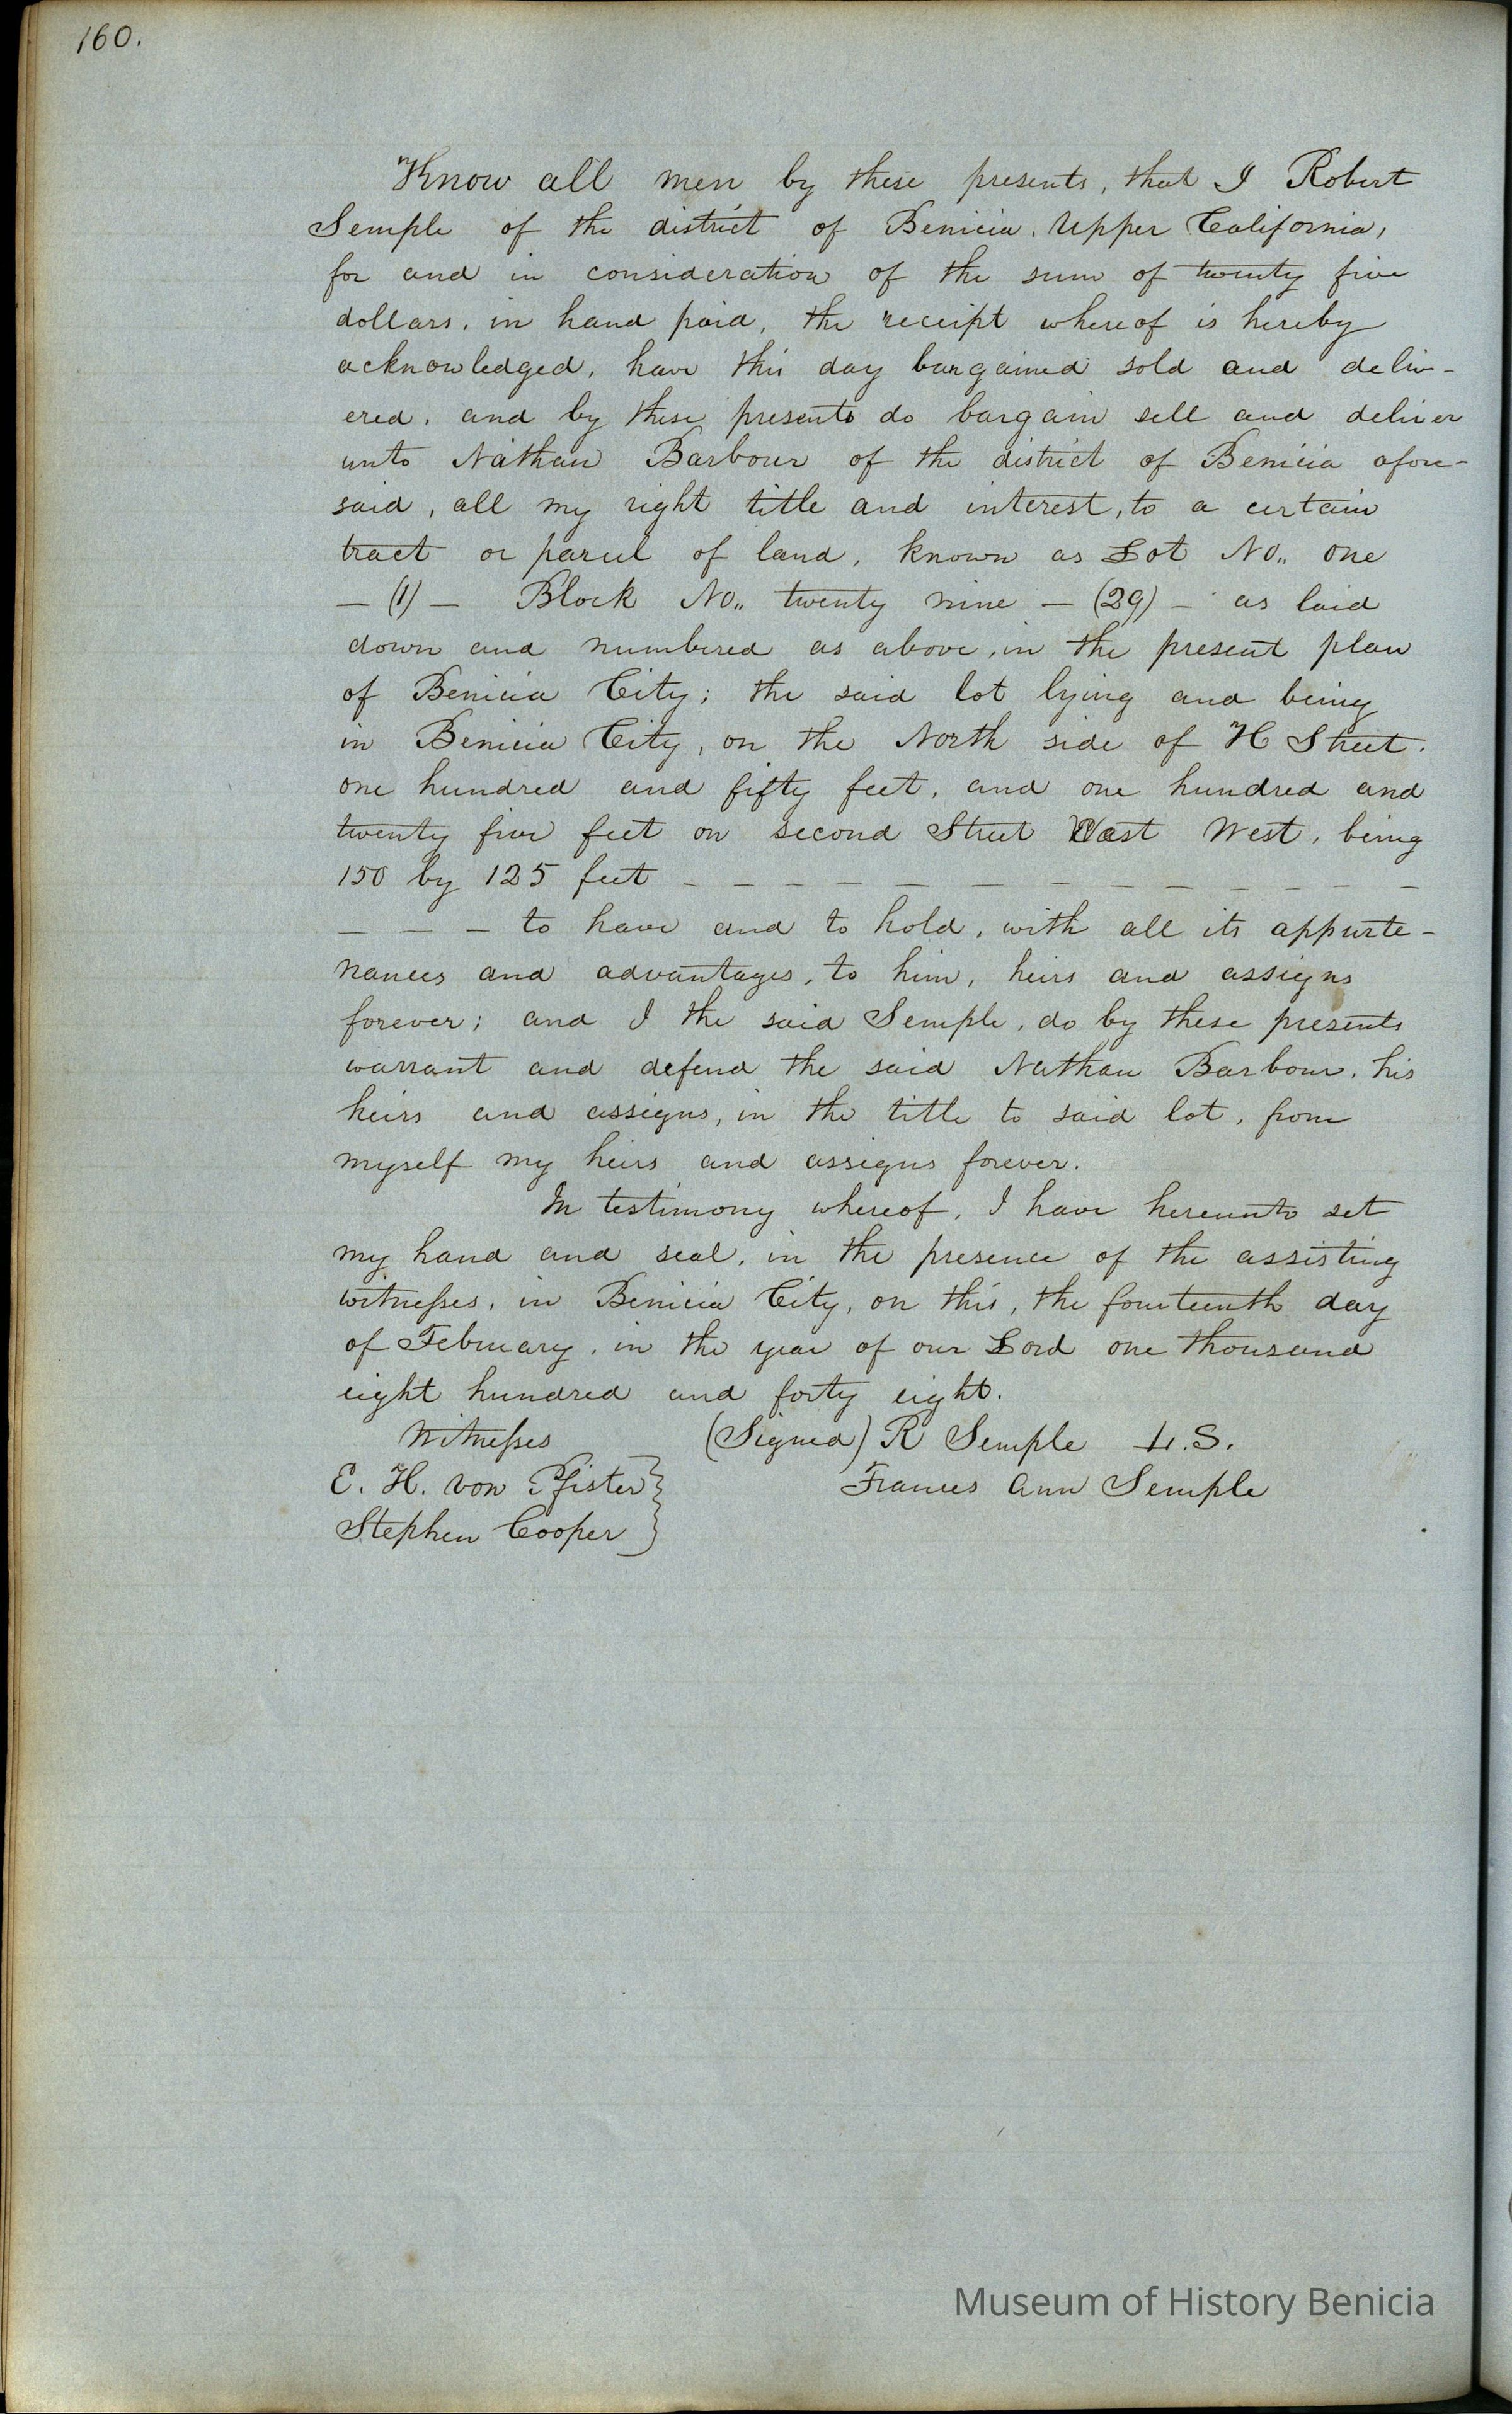 160.
Know all men by these presents, that I Robert
Semple of the district of Benicia, Upper California,
for and in consideration of the sum of twenty five
dollars, in hand paid, the receipt whereof is hereby
acknowledged, have this day bargained sold and deliv-
ered, and by these presents do bargain sell and deliver
unto Nathan Barbour of the district of Benicia afore-
said, all my right title and interest, to a certain
tract or parcel of land, known as Lot No,, one
— (1) — Block No,, twenty nine — (29) — as laid
down and numbered as above, in the present plan
of Benicia City; the said lot lying and being
in Benicia City, on the North side of H Street.
one hundred and fifty feet, and one hundred and
twenty five feet on second Street East West, being
150 by 125 feet — — — — — — — — — — — — — —
— — — to have and to hold, with all its appurte-
nances and advantages, to him, heirs and assigns
forever; and I the said Semple, do by these presents
warrant and defend the said Nathan Barbour, his
heirs and assigns, in the title to said lot, from
myself my heirs and assigns forever.
In testimony whereof, I have hereunto set
my hand and seal, in the presence of the assisting
witnesses, in Benicia City, on this, the fourteenth day
of February, in the year of our Lord one thousand
eight hundred and forty eight.
Witnesses (Signed) R Semple L.S.
E. H. von Pfister } Frances Ann Semple
Stephen Cooper }
Museum of History Benicia